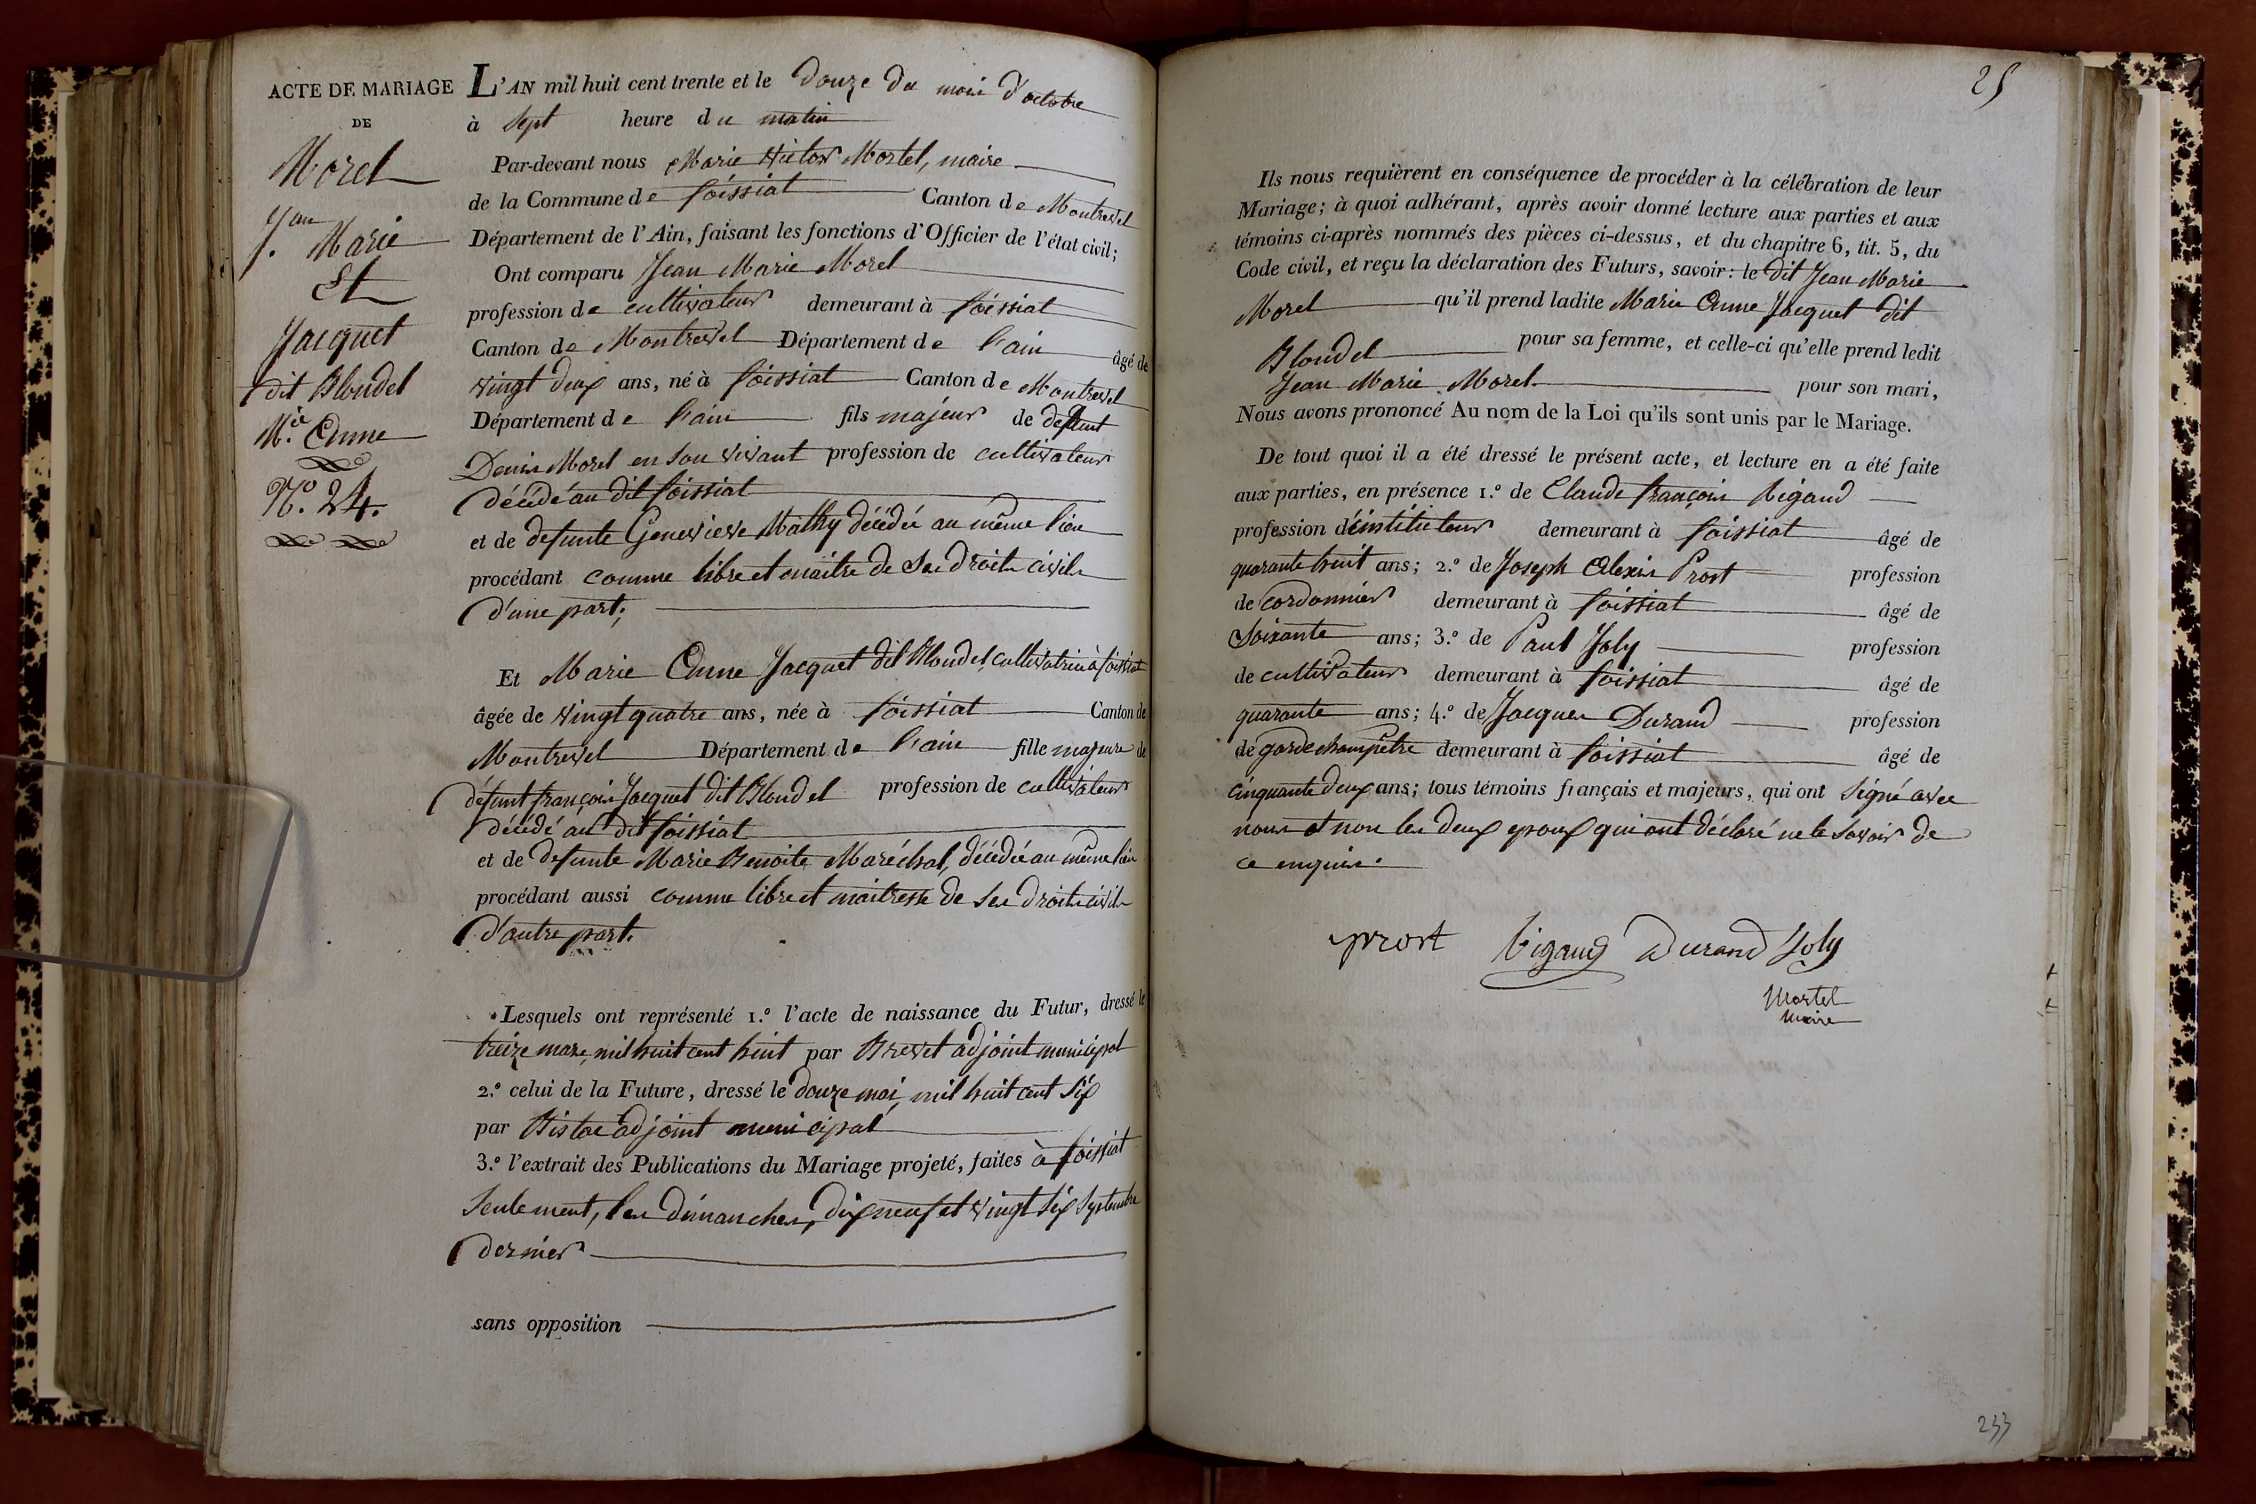 ACTE DE MARIAGE
DE
Morel
Jean
Marie
Et
Jacquet
dit Blondel
M.ie Anne
N.o 24.
L'AN mil huit cent trente et le douze du mois d'octobre
à sept heure du matin
Par-devant nous Marie Victor Mortel, maire
de la Commune de foissiat Canton de Montrevel
Département de l'Ain, faisant les fonctions d'Officier de l'état civil;
Ont comparu Jean Marie Morel
profession de cultivateur demeurant à foissiat
Canton de Montrevel Département de l'ain âgé de
vingt deux ans, né à foissiat Canton de Montrevel
Département de l'ain fils majeur de defunt
Denis Morel en son vivant profession de cultivateur
décédé au dit foissiat
et de defunte Genevieve Mathy décédée au même lieu
procédant comme libre et maitre de Ses droits civils
d'une part;
Et Marie Anne Jacquet dit Blondel, cultivatrice à foissiat
âgée de vingt quatre ans, née à foissiat Canton de
Montrevel Département de l'ain fille majeure de
défunt françois Jacquet dit Blondel profession de cultivateur
décédé au dit foissiat
et de defunte Marie Benoite Maréchal, décédée au même lieu
procédant aussi comme libre et maitresse de Ses droits civils
d'autre part.
Lesquels ont représenté 1.º l'acte de naissance du Futur, dressé le
treize mars, mil huit cent huit par Brevet adjoint municipal
2.º celui de la Future, dressé le douze mai, mil huit cent Six
par Bistac adjoint municipal
3.º l'extrait des Publications du Mariage projeté, faites à foissiat
Seulement, les dimanches, dix neuf et vingt Six Septembre
dernier
sans opposition
25
Ils nous requièrent en conséquence de procéder à la célébration de leur
Mariage; à quoi adhérant, après avoir donné lecture aux parties et aux
témoins ci-après nommés des pièces ci-dessus, et du chapitre 6, tit. 5, du
Code civil, et reçu la déclaration des Futurs, savoir: le dit Jean Marie
Morel qu'il prend ladite Marie Anne Jacquet dit
Blondel pour sa femme, et celle-ci qu'elle prend ledit
Jean Marie Morel pour son mari,
Nous avons prononcé Au nom de la Loi qu'ils sont unis par le Mariage.
De tout quoi il a été dressé le présent acte, et lecture en a été faite
aux parties, en présence 1.º de Claude françois Rigaud
profession d'instituteur demeurant à foissiat âgé de
quarante huit ans; 2.º de Joseph Alexis Prost profession
de cordonnier demeurant à foissiat âgé de
Soixante ans; 3.º de Paul Joly profession
de cultivateur demeurant à foissiat âgé de
quarante ans; 4.º de Jacques Durand profession
de garde champêtre demeurant à foissiat âgé de
cinquante deux ans; tous témoins français et majeurs, qui ont Signé avec
nous et non les deux epoux qui ont déclaré ne le Savoir de
ce enquis.
prost Rigaud Durand Joly
Mortel
Maire
233